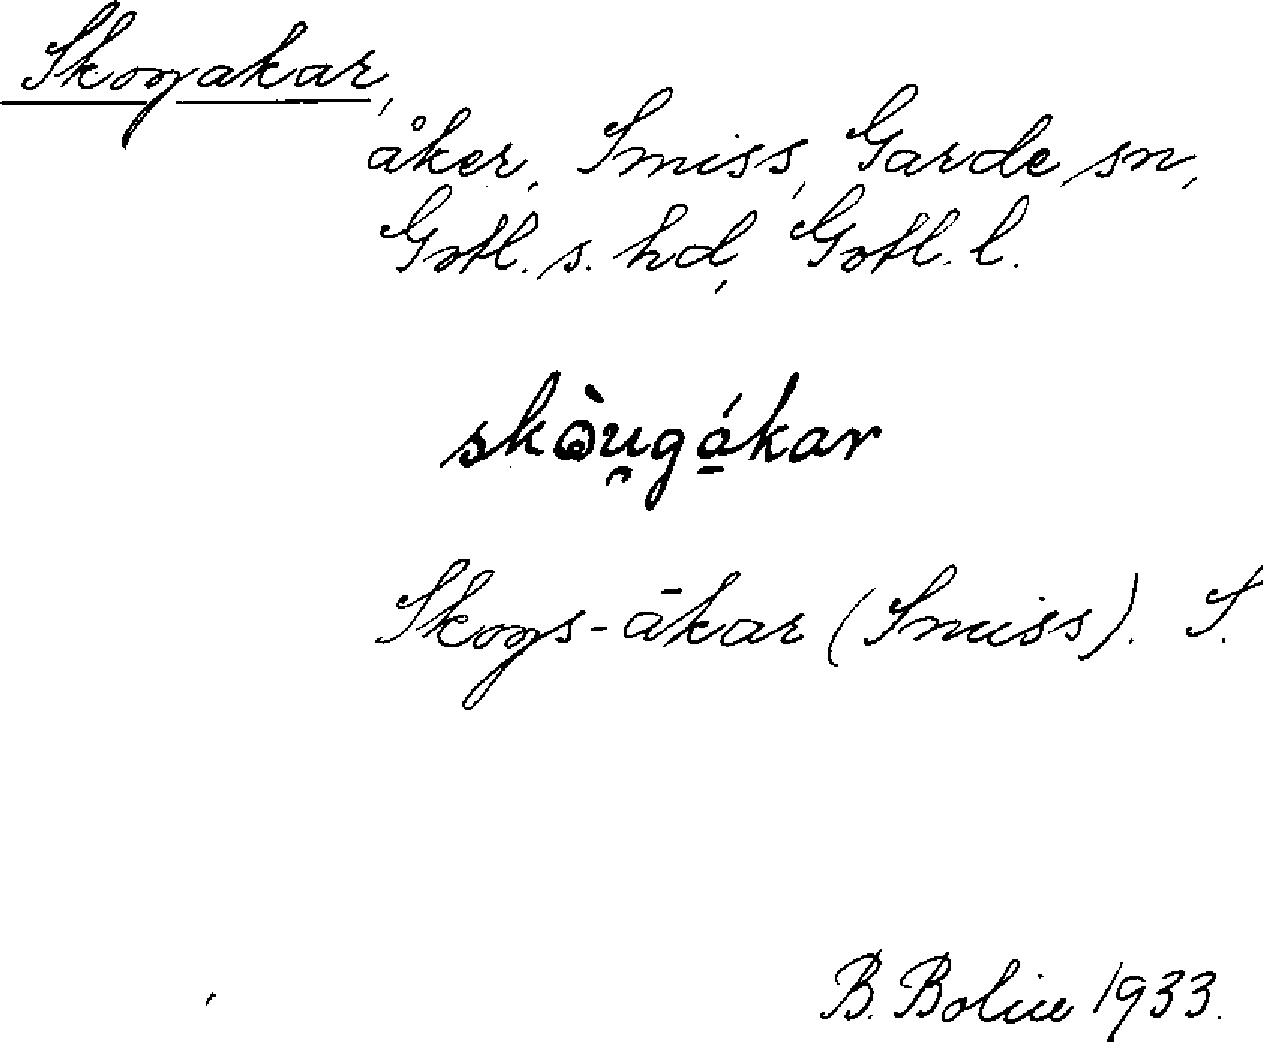 Skogakar,
åker, Smiss, Garde sn,
Gotl. s. hd, Gotl. l.
skòu̯gá̱kar
Skogs-ākar (Smiss). S.
B. Bolin 1933.